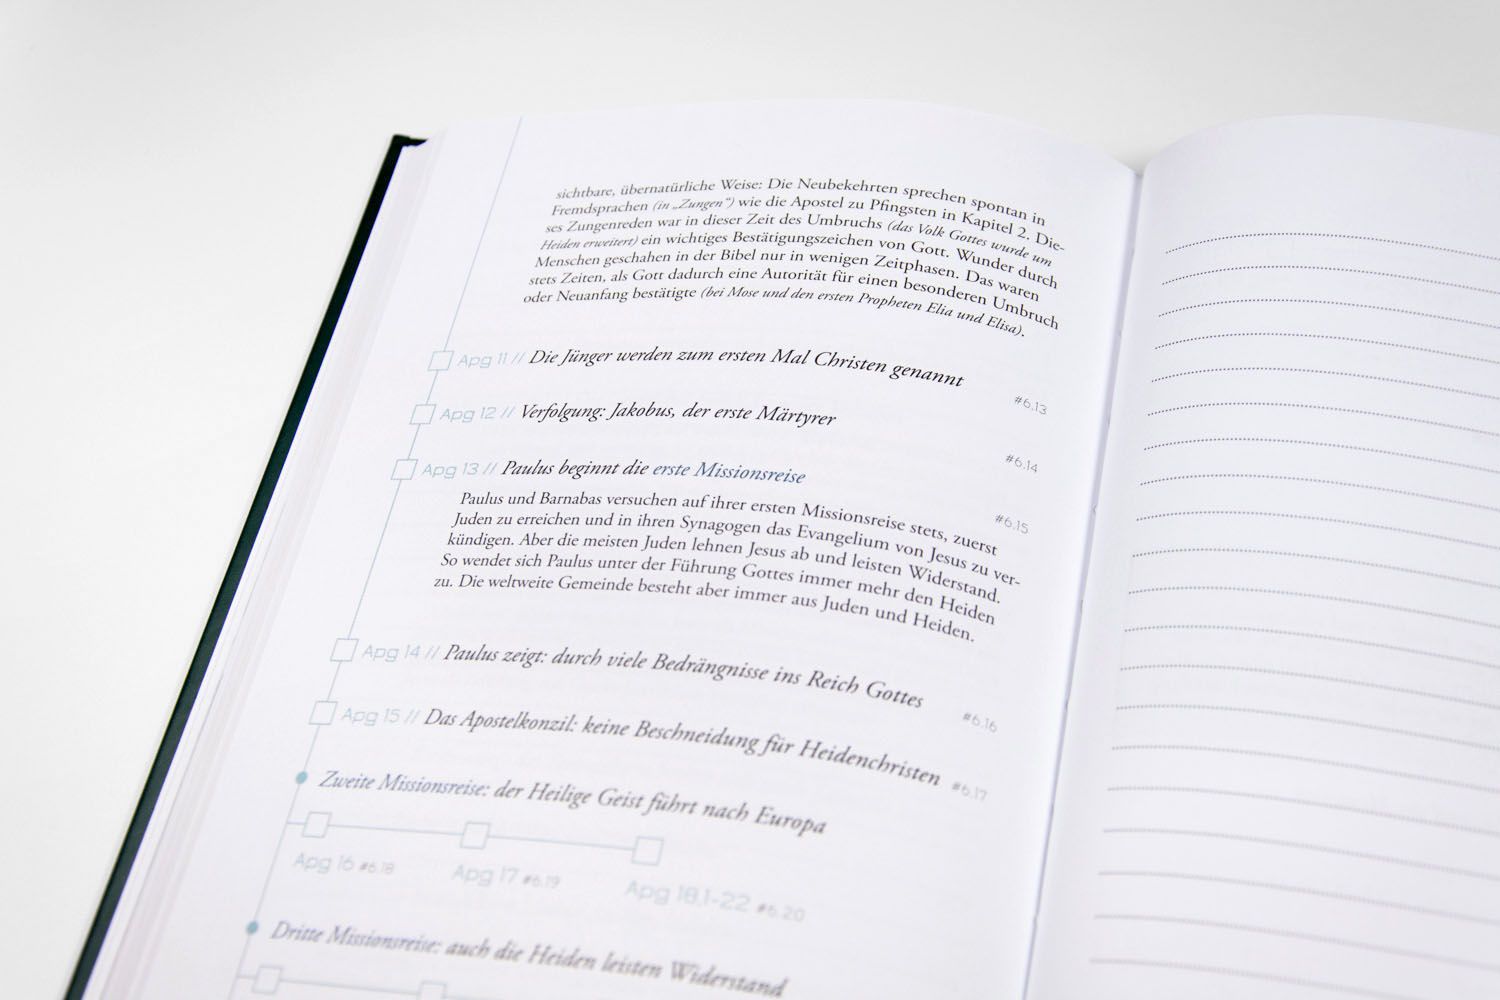 sichtbare, übernatürliche Weise: Die Neubekehrten sprechen spontan in
Fremdsprachen (in „Zungen“) wie die Apostel zu Pfingsten in Kapitel 2. Die-
ses Zungenreden war in dieser Zeit des Umbruchs (das Volk Gottes wurde um
Heiden erweitert) ein wichtiges Bestätigungszeichen von Gott. Wunder durch
Menschen geschahen in der Bibel nur in wenigen Zeitphasen. Das waren
stets Zeiten, als Gott dadurch eine Autorität für einen besonderen Umbruch
oder Neuanfang bestätigte (bei Mose und den ersten Propheten Elia und Elisa).
Apg 11 // Die Jünger werden zum ersten Mal Christen genannt #6.13
Apg 12 // Verfolgung: Jakobus, der erste Märtyrer #6.14
Apg 13 // Paulus beginnt die erste Missionsreise #6.15
Paulus und Barnabas versuchen auf ihrer ersten Missionsreise stets, zuerst
Juden zu erreichen und in ihren Synagogen das Evangelium von Jesus zu ver-
kündigen. Aber die meisten Juden lehnen Jesus ab und leisten Widerstand.
So wendet sich Paulus unter der Führung Gottes immer mehr den Heiden
zu. Die weltweite Gemeinde besteht aber immer aus Juden und Heiden.
Apg 14 // Paulus zeigt: durch viele Bedrängnisse ins Reich Gottes #6.16
Apg 15 // Das Apostelkonzil: keine Beschneidung für Heidenchristen #6.17
Zweite Missionsreise: der Heilige Geist führt nach Europa
Apg 16 #6.18 Apg 17 #6.19 Apg 18,1-22 #6.20
Dritte Missionsreise: auch die Heiden leisten Widerstand